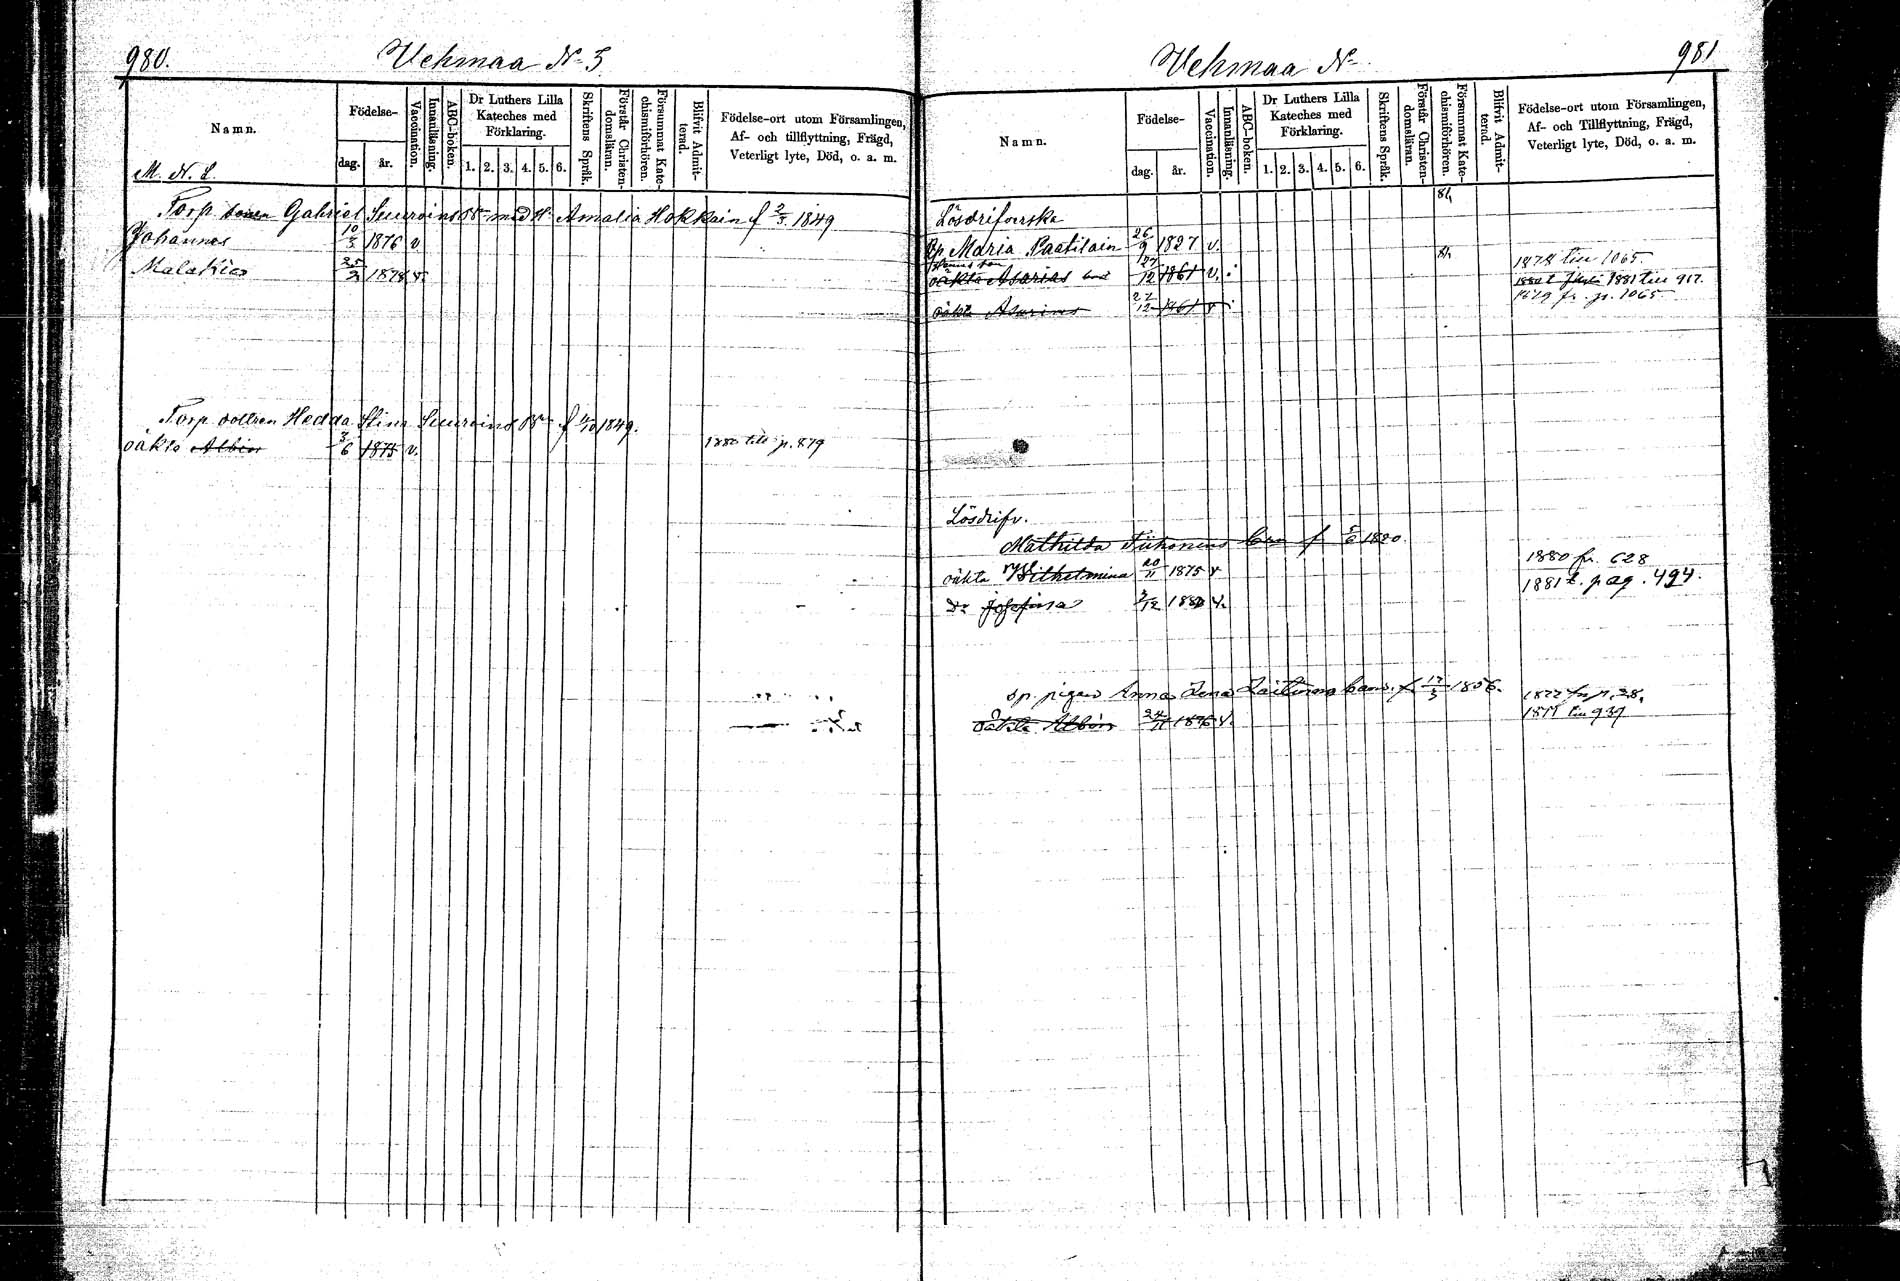 980.
Vehmaa № 5
Namn.
Födelse-
dag.
år.
Vaccination.
Innanläsning.
ABC-boken.
Dr Luthers Lilla
Kateches med
Förklaring.
1. 2. 3. 4. 5. 6.
Skriftens Språk.
Förstår Christen-
domsläran.
Försummat Kate-
chismiförhören.
Blifvit Admit-
terad.
Födelse-ort utom Församlingen,
Af- och tillflyttning, Frägd,
Veterligt lyte, Död, o. a. m.
M. N. L.
Torp. sonen Gabriel Suuroinens Bn med H: Amalia Hokkain f 2/3 1849
Johannes 10/3 1876 v
Malakias 25/2 1878 v.
Torp. dottren Hedda Stina Suuroinens Bn f 4/10 1849.
oäkta Albin 3/6 1875 v. 1880 till p. 879
981
Vehmaa №
Namn.
Födelse-
dag.
år.
Vaccination.
Innanläsning.
ABC-boken.
Dr Luthers Lilla
Kateches med
Förklaring.
1. 2. 3. 4. 5. 6.
Skriftens Språk.
Förstår Christen-
domsläran.
Försummat Kate-
chismiförhören.
Blifvit Admit-
terad.
Födelse-ort utom Församlingen,
Af- och Tillflyttning, Frägd,
Veterligt lyte, Död, o. a. m.
81
Lösdrifverska
Maria Paatilain 26/9 1827 v. 81 1878 till 1065.
oäkta Asarias 27/12 1861 v. 1881 till 917.
1879 fr. p. 1065
oäkta Asarias 27/12 1861 v
Lösdrifv.
Mathilda Tiihonens barn f 5/6 1820.
1880 fr. 628
oäkta Wilhelmina 20/11 1875 v 1881 t. pag. 494.
Do Josefina 3/12 1880 v.
sp. pigan Anna Lena Laitinens barn. f. 17/3 1856. 1877 fr p. 28.
oäkta Albin 24/11 1876 v. 1877 till 937